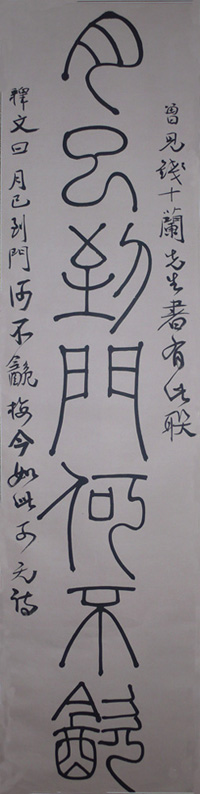 曾見錢十蘭先生書有此联
月已到門何不㱃
釋文曰月已到門何不㱃梅今如此可无詩